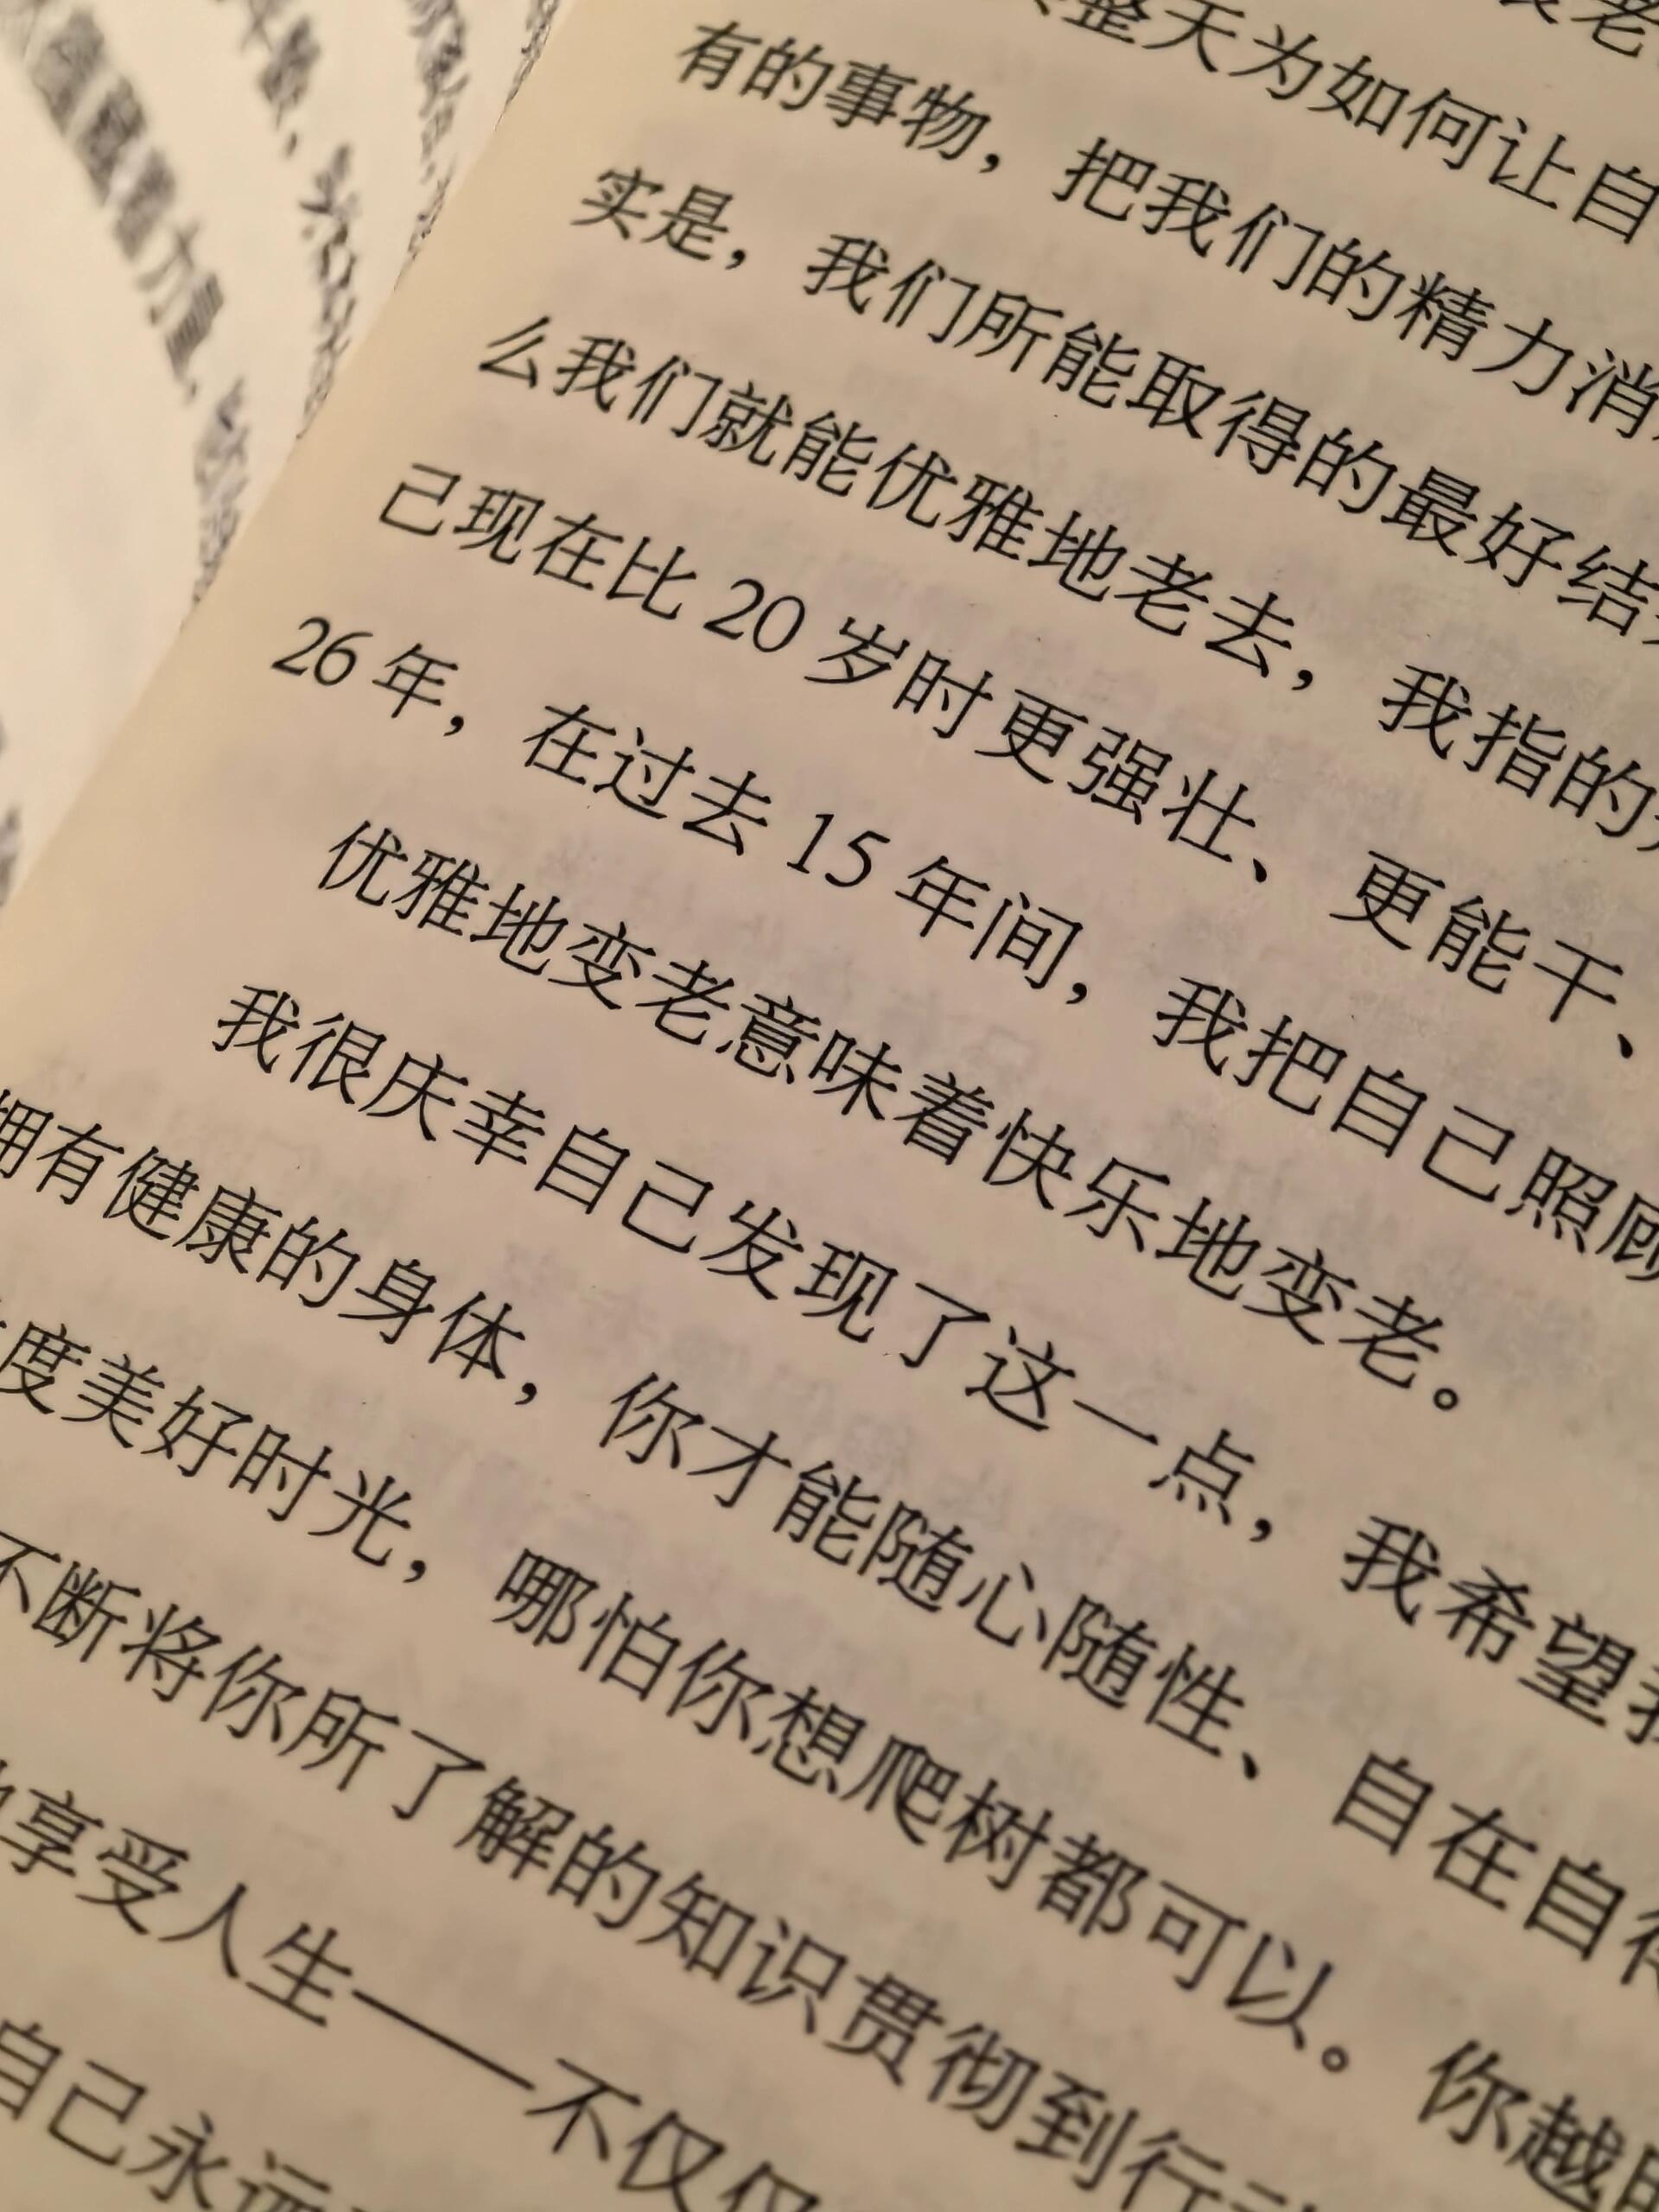 整天为如何让自
有的事物，把我们的精力消
实是，我们所能取得的最好结
么我们就能优雅地老去，我指的
己现在比 20 岁时更强壮、更能干、
26 年，在过去 15 年间，我把自己照顾
优雅地变老意味着快乐地变老。
我很庆幸自己发现了这一点，我希望
拥有健康的身体，你才能随心随性、自在自得
度美好时光，哪怕你想爬树都可以。你越
不断将你所了解的知识贯彻到行
享受人生——不仅仅
自己永远